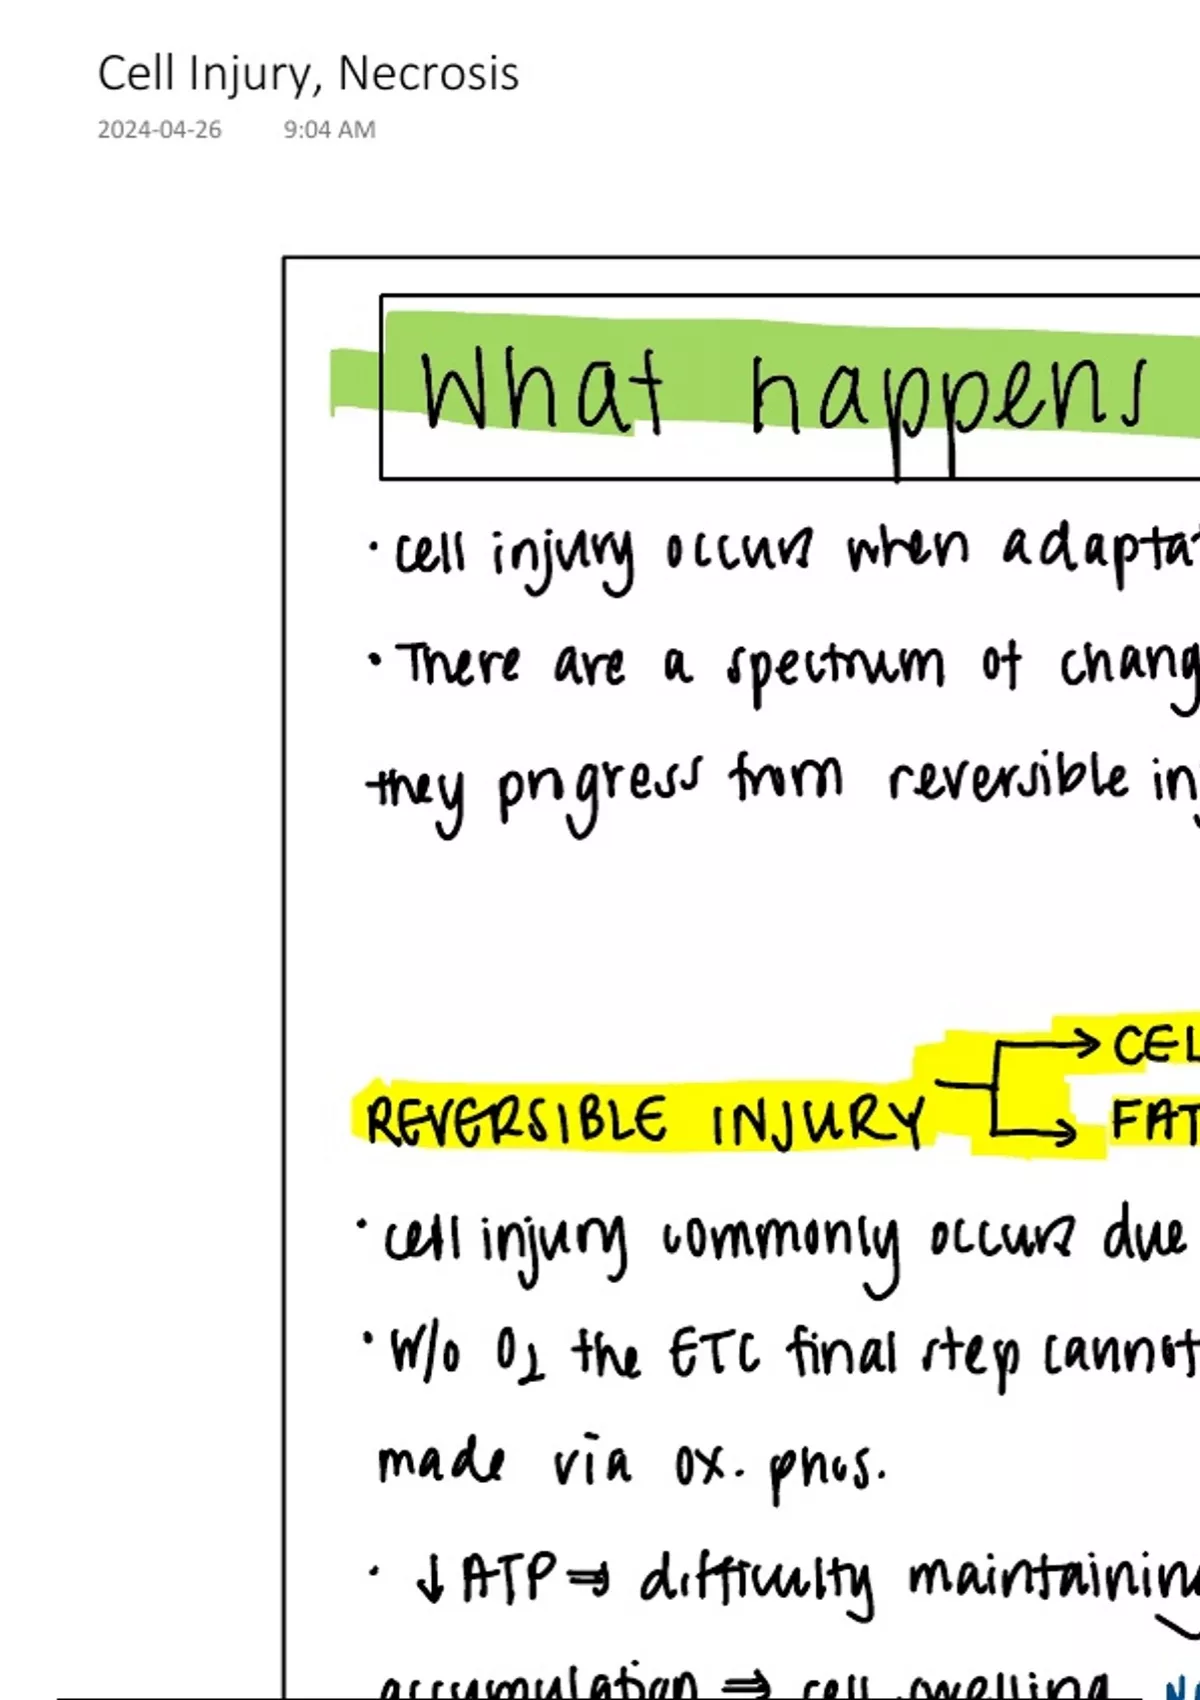 Cell Injury, Necrosis
2024-04-26 9:04 AM
What happens
· cell injury occurs when adaptat
· There are a spectrum of chang
they progress from reversible inj
→ CEL
REVERSIBLE INJURY → FAT
· cell injury commonly occurs due
· W/o O2 the ETC final step cannot
made via ox. phos.
· ↓ ATP ⇒ difficulty maintaining
accumulation ⇒ cell swelling Na